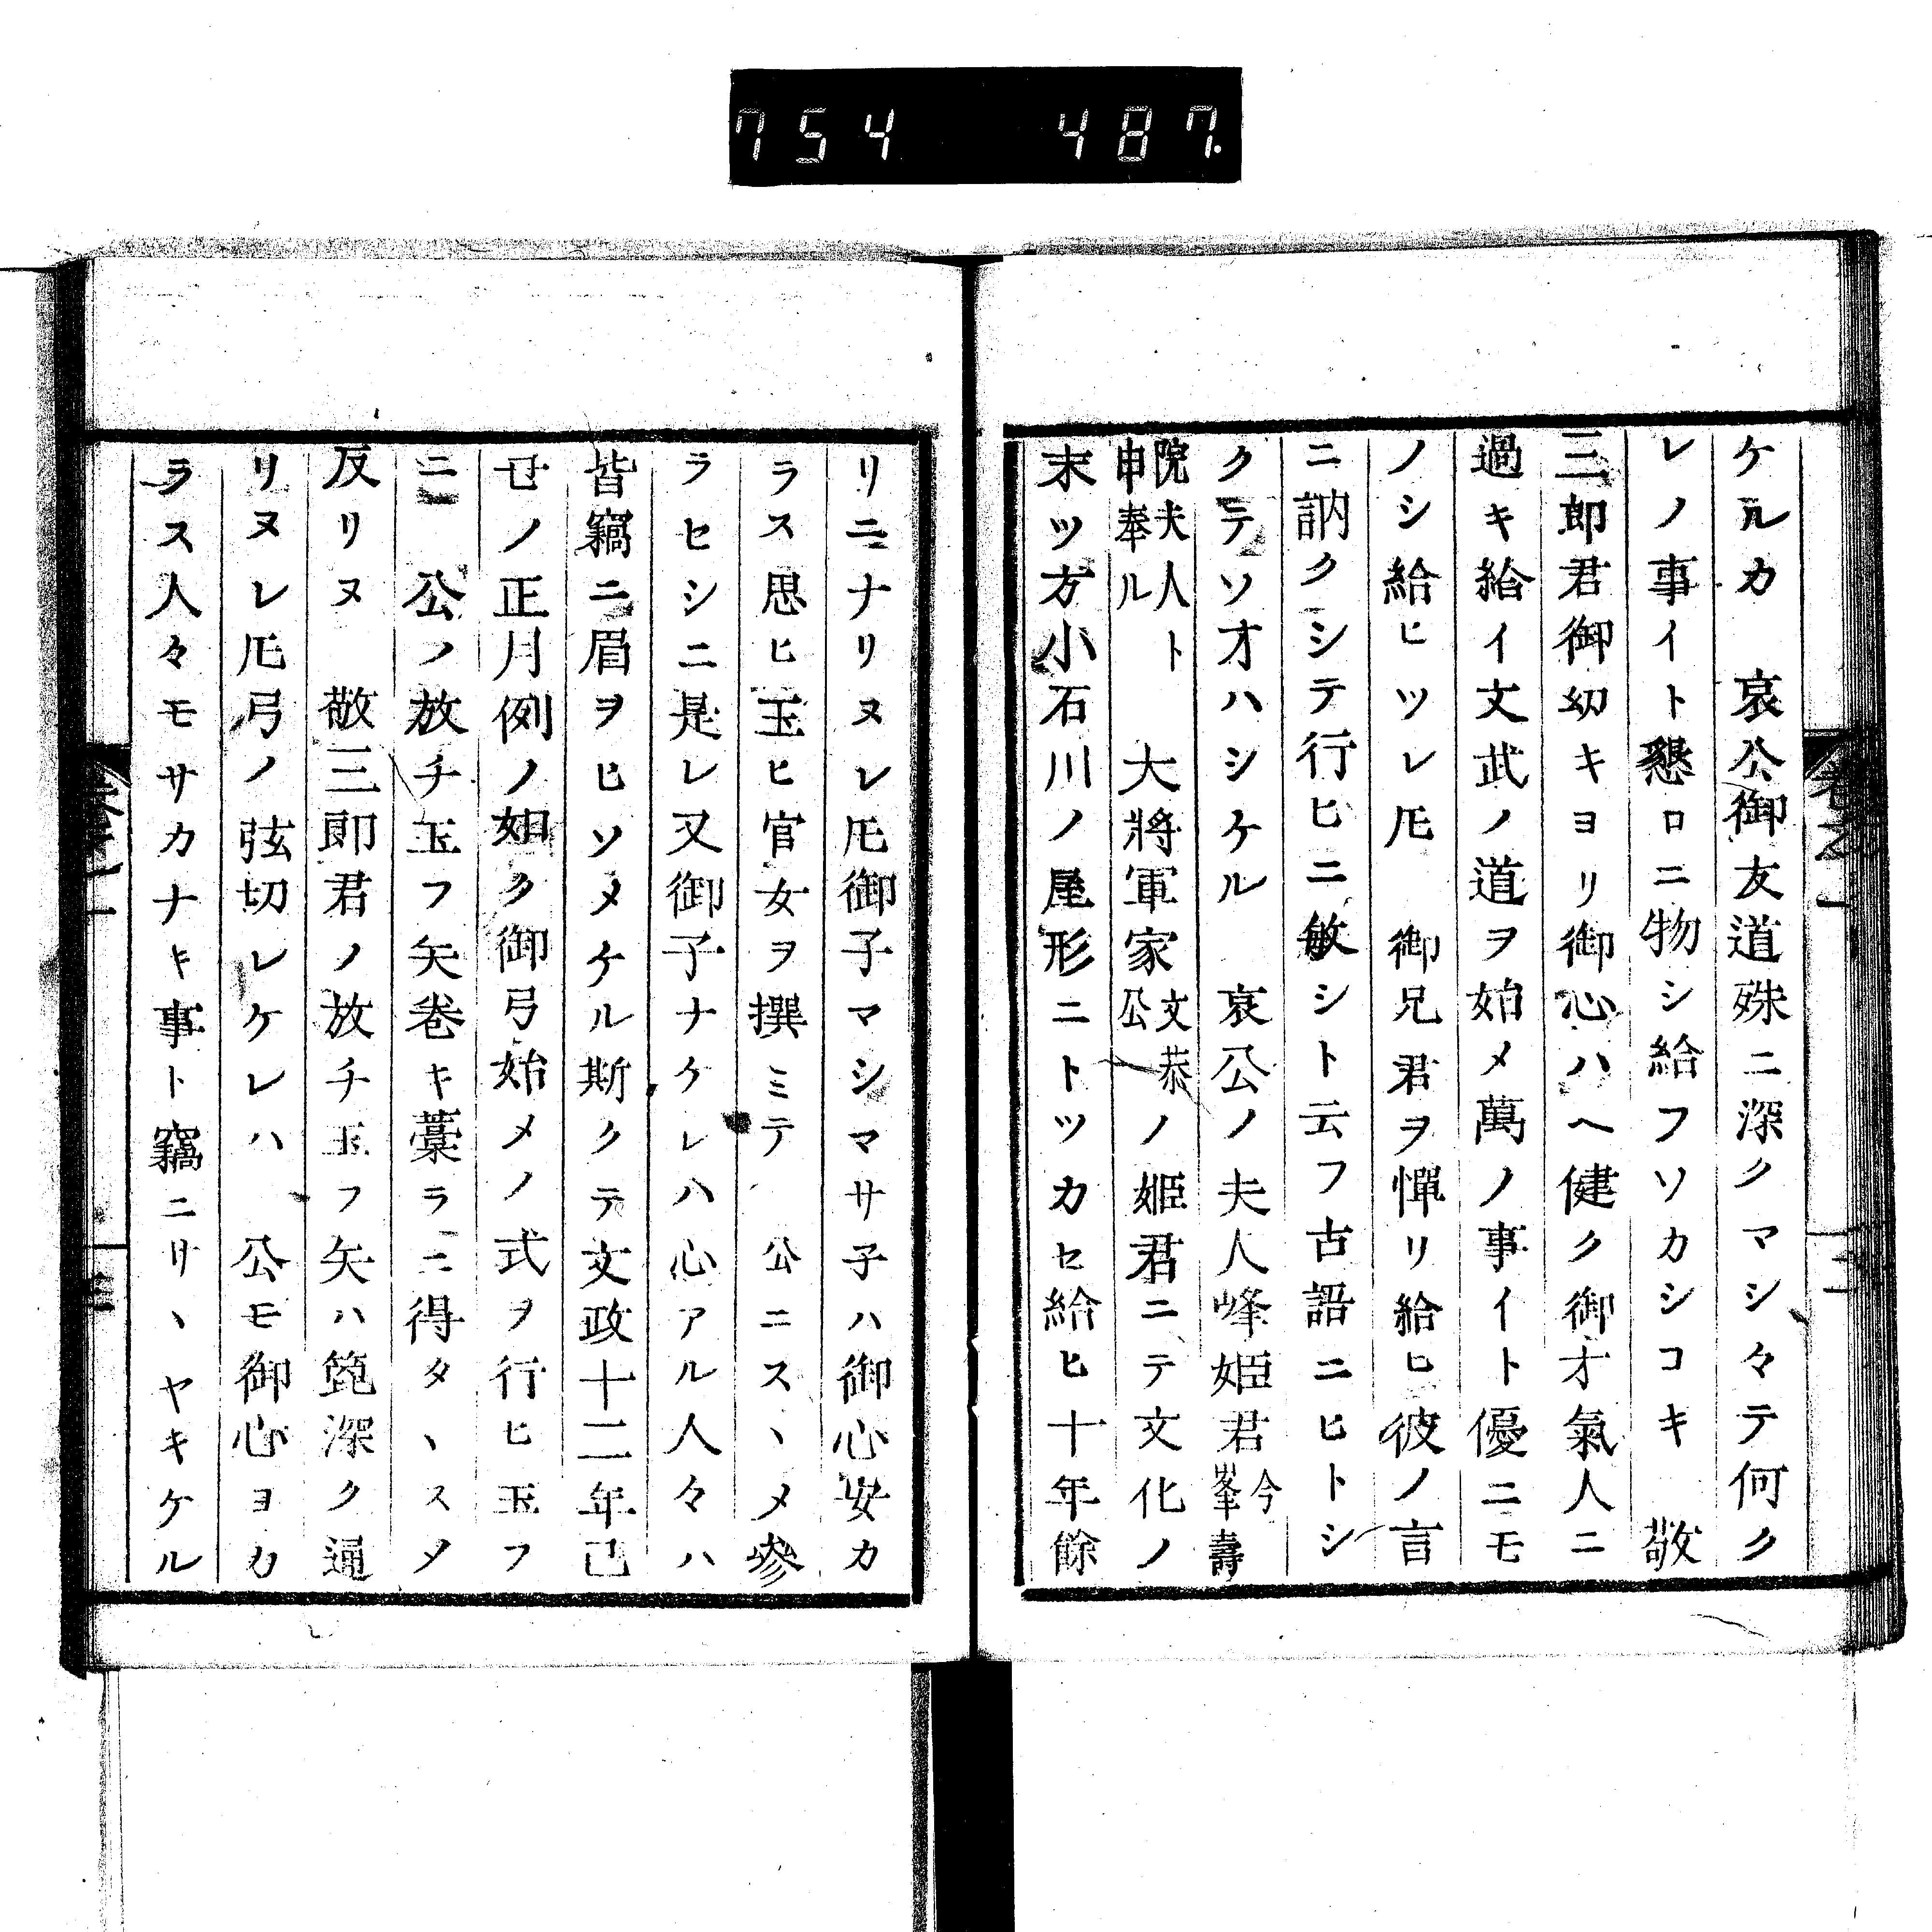 754 487.
ケルカ　哀公御友道殊ニ深クマシ々テ何ク
レノ事イト懇ロニ物シ給フソカシコキ　敬
三郎君御幼キヨリ御心ハヘ健ク御才氣人ニ
過キ給イ文武ノ道ヲ始メ萬ノ事イト優ニモ
ノシ給ヒツレ𪜈　御兄君ヲ憚リ給ヒ彼ノ言
ニ訥クシテ行ヒニ敏シト云フ古語ニヒトシ
クテソオハシケル　哀公ノ夫人峰姫君今峯壽
院夫人ト申奉ル　大將軍家文恭公ノ姫君ニテ文化ノ
末ツ方小石川ノ屋形ニトツカセ給ヒ十年餘
リニナリヌレ𪜈御子マシマサ子ハ御心安カ
ラス思ヒ玉ヒ官女ヲ撰ミテ　公ニスヽメ參
ラセシニ是レ又御子ナケレハ心アル人々ハ
皆竊ニ眉ヲヒソメケル斯クテ文政十二年己
丑ノ正月例ノ如ク御弓始メノ式ヲ行ヒ玉フ
ニ　公ノ放チ玉フ矢巻キ藁ラニ得タヽスメ
反リヌ　敬三郎君ノ放チ玉フ矢ハ箆深ク通
リヌレ𪜈弓ノ弦切レケレハ　公モ御心ヨカ
ラス人々モサカナキ事ト竊ニサヽヤキケル